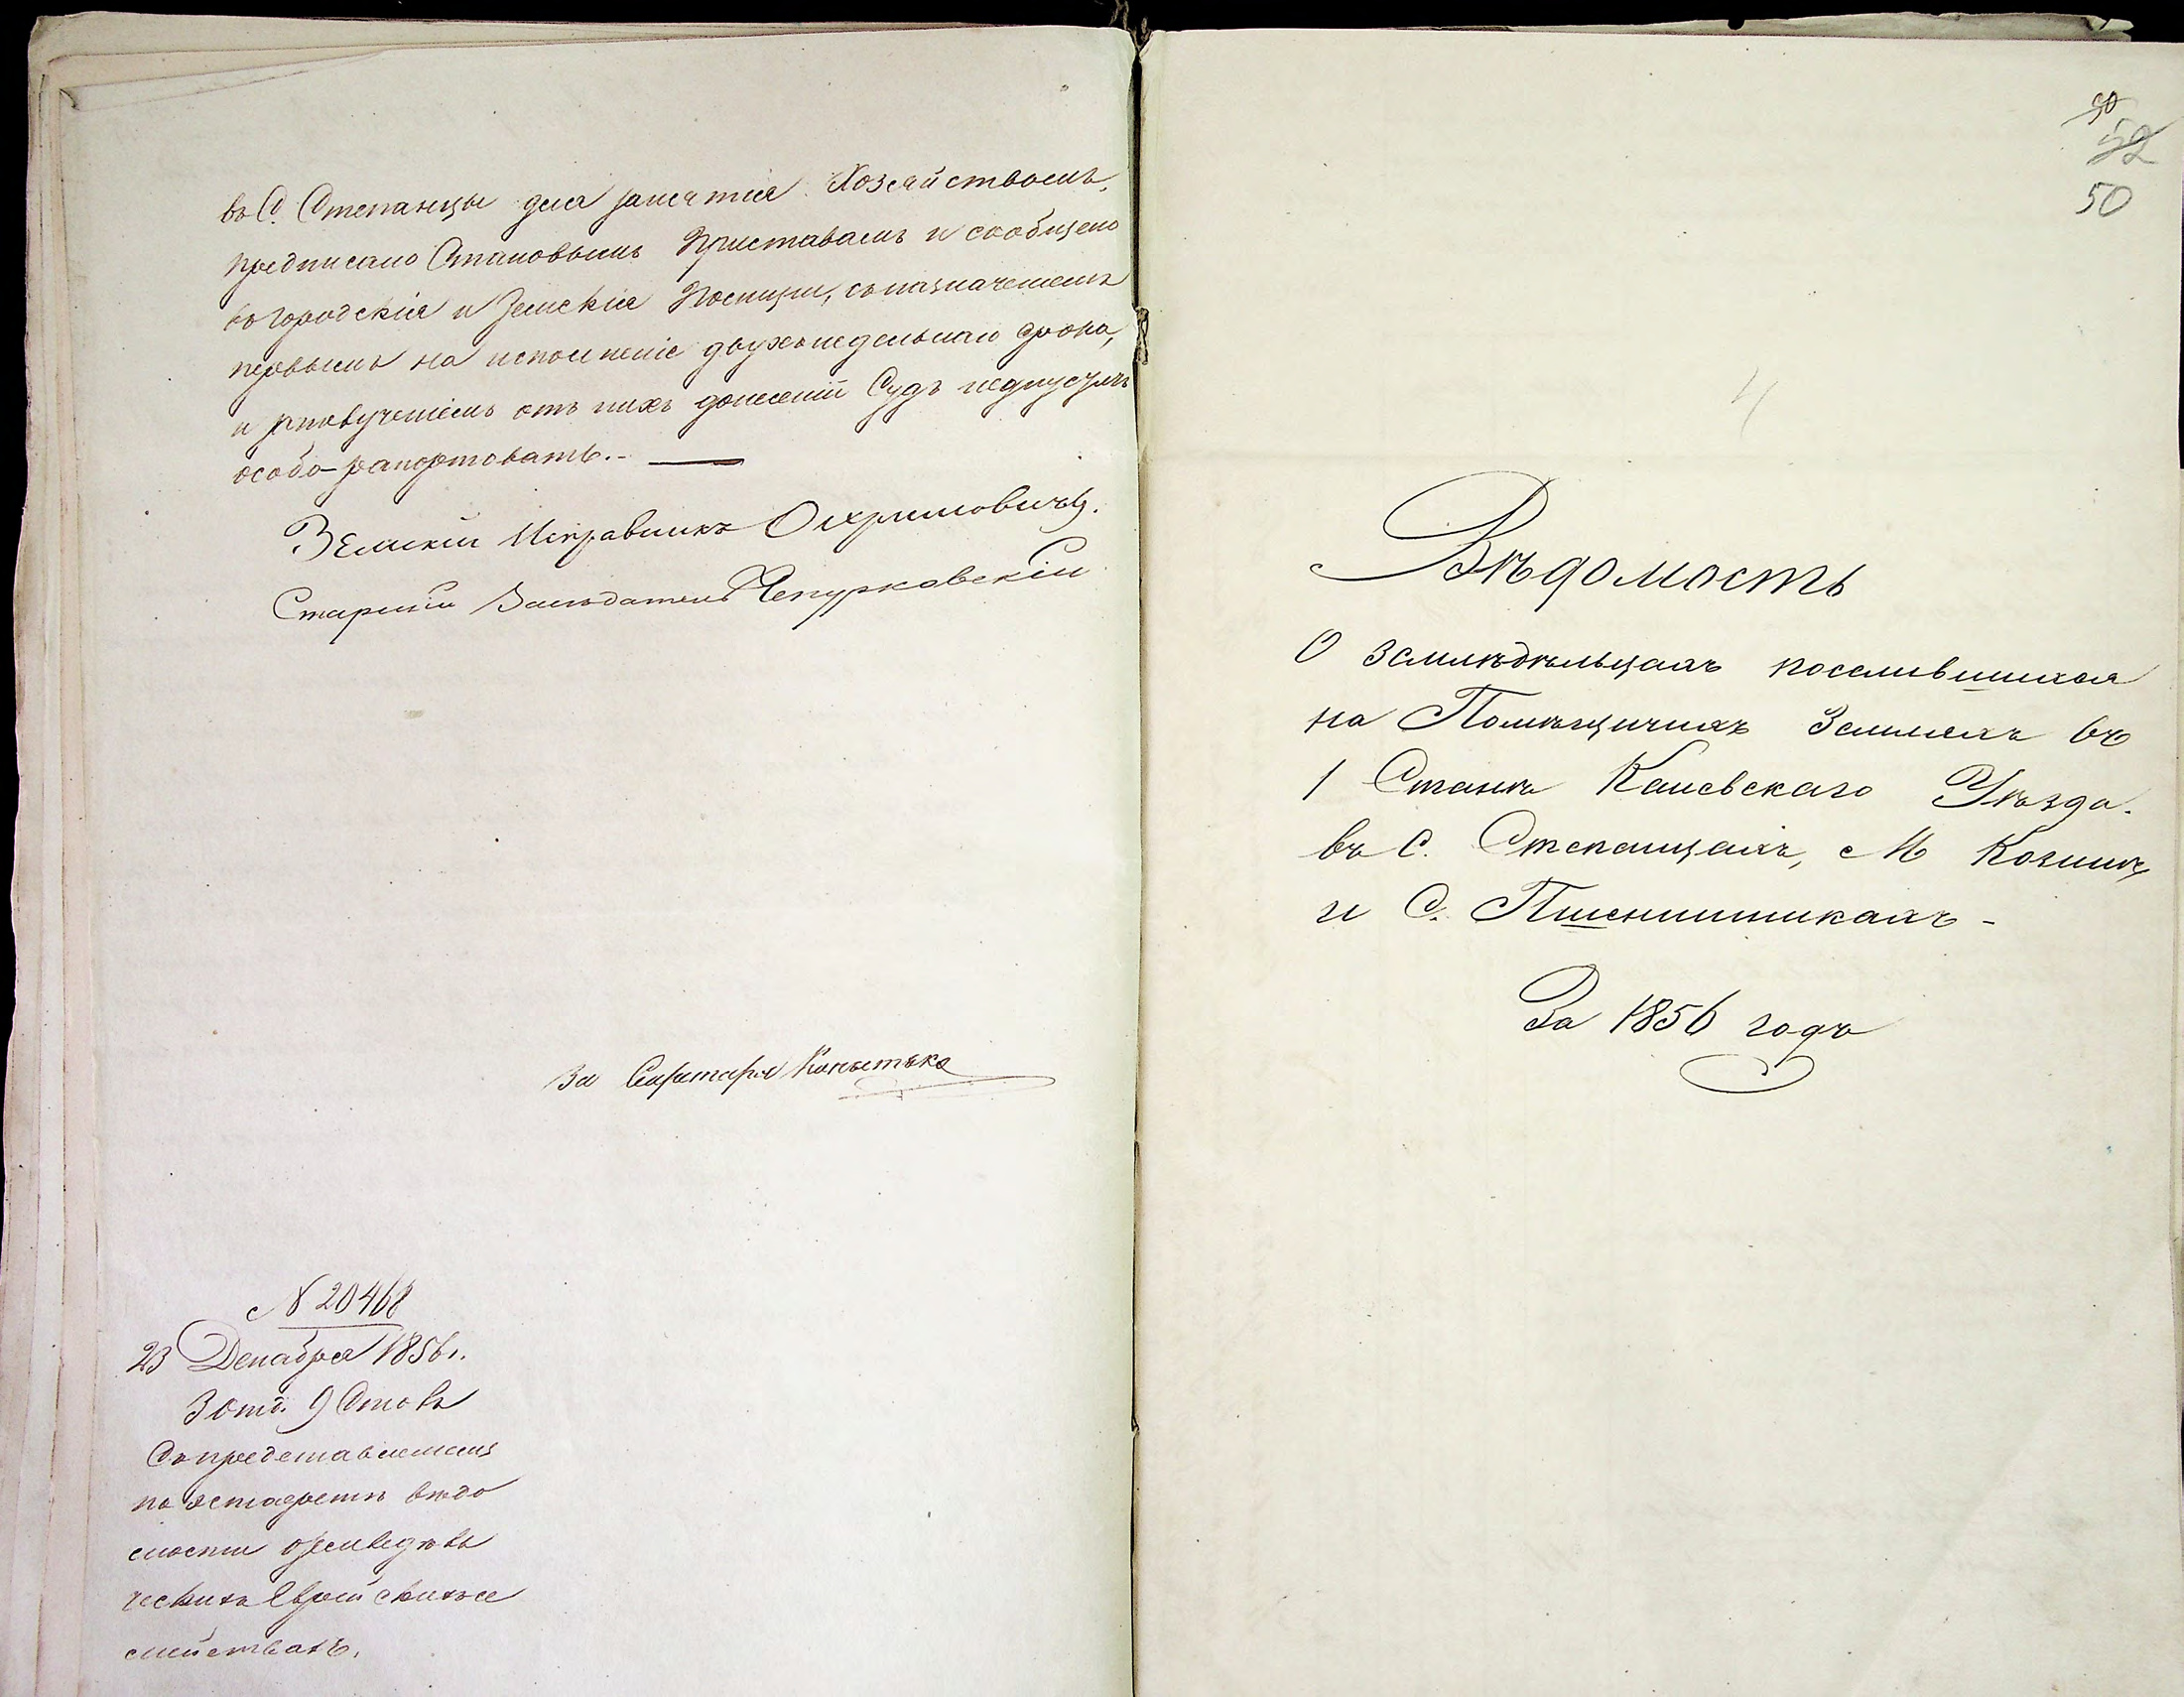 въ С. Степанцы для занятія Хозяйствомъ,
предписано Становымъ Приставамъ и сообщено
въ Городскія и Земскія Полиціи, съ назначеніемъ
первымъ на исполненіе двухънедельнаго срока,
и по полученіемъ отъ нихъ донесеній Судъ недпуститъ
особо рапортовать.-
Земскій Исправникъ
Старшій Засѣдатель Чепурковскій
За Секретаря
№ 20468
23 Декабря 1856 г.
3 отд. 9 Столъ
Съ представленіемъ
по эстафетѣ вѣдо
мости о земледѣль
ческихъ Еврейскихъ се
мействахъ.
50
52
50
Вѣдомость
О земледѣльцахъ поселившихся
на Помѣщичихъ Земляхъ въ
1 Станѣ Каневскаго Уѣзда.
въ С. Степанцахъ, М Козинѣ
и С. Пшеничникахъ -
За 1856 годъ